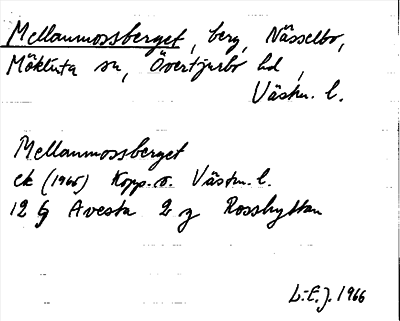 Mellanmossberget, berg, Nässelbo,
Möklinta sn, Övertjurbo hd,
Västm. l.
Mellanmossberget
ek (1965) Kopp. o. Västm. l.
12 G Avesta 2 g Rosshyttan
L-E.J. 1966